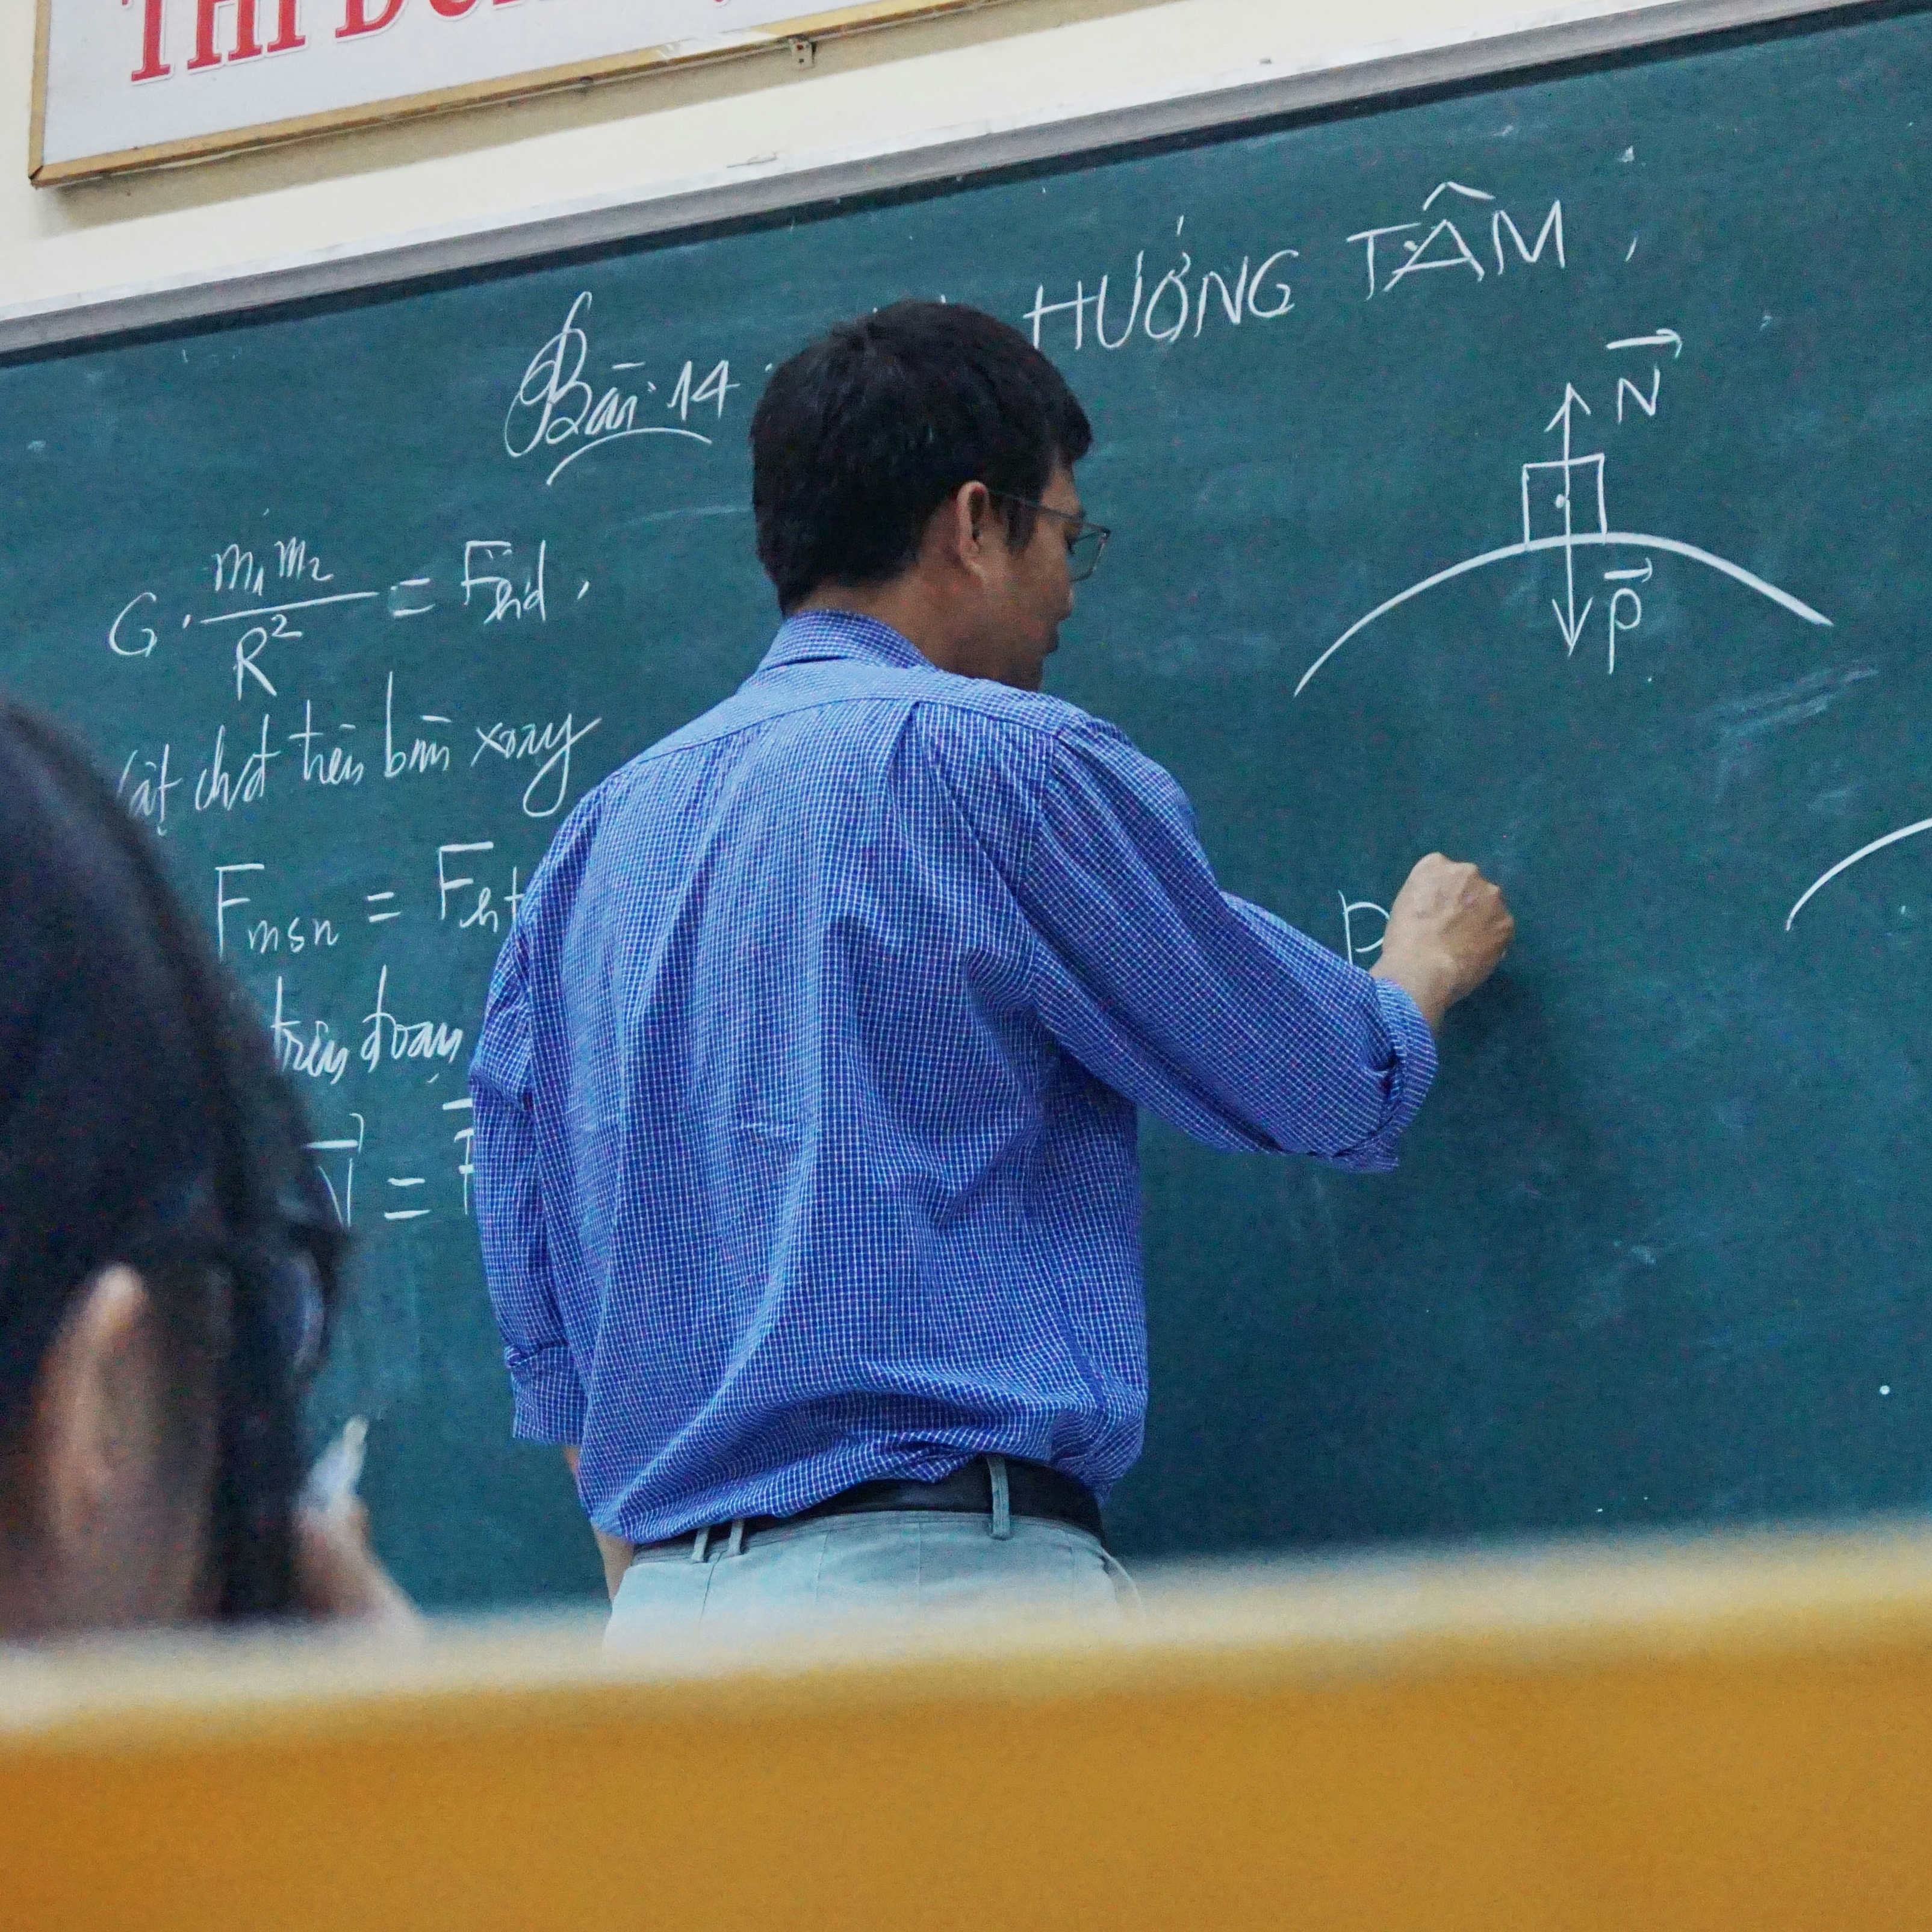 THI
Bài 14 : HƯỚNG TÂM
N
G . m₁m₂ / R² = Fhd
P
Vật chất trên bàn xoay
Fmsn = Fht
P
trên đoạn
N =